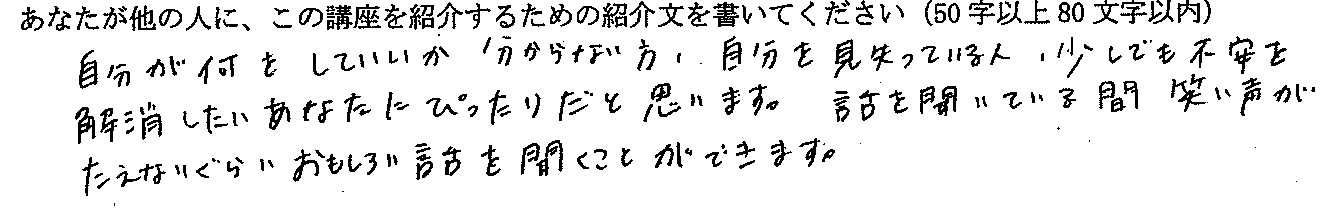 あなたが他の人に、この講座を紹介するための紹介文を書いてください（50字以上80文字以内）
自分が何をしていいか分からない方、自分を見失っている人、少しでも不安を
解消したいあなたにぴったりだと思います。話を聞いている間笑い声が
たえないぐらいおもしろい話を聞くことができます。